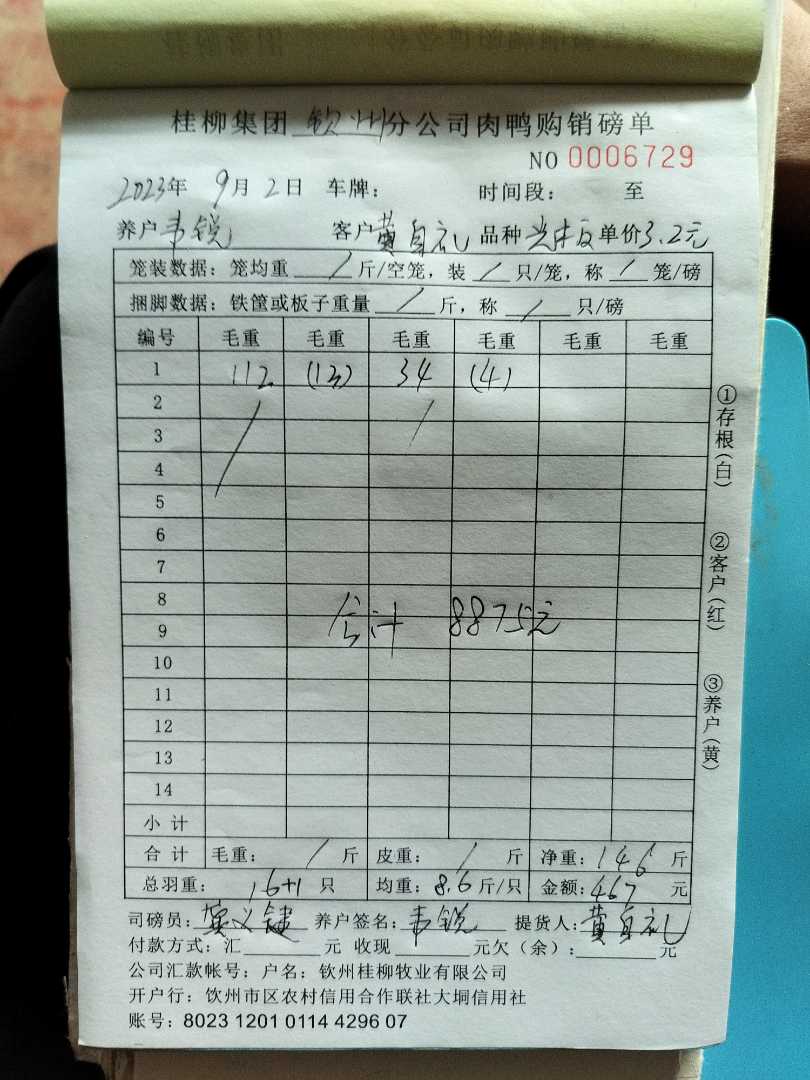 桂柳集团 钦州 分公司肉鸭购销磅单
NO 0006729
2023年 9月 2日 车牌： 时间段： 至
养户 韦锐 客户 黄自礼 品种 单价 3.2元
笼装数据：笼均重 / 斤/空笼，装 / 只/笼，称 / 笼/磅
捆脚数据：铁筐或板子重量 / 斤，称 / 只/磅
编号 毛重 毛重 毛重 毛重 毛重 毛重
1 112 (13) 34 (4)
2
3
4
5
6
7
8
合计 8875元
9
10
11
12
13
14
小计
合计 毛重： / 斤 皮重： / 斤 净重：146 斤
总羽重： 16+1 只 均重：8.6 斤/只 金额：467 元
司磅员： 养户签名：韦锐 提货人：黄自礼
付款方式：汇 元 收现 元欠（余）： 元
公司汇款帐号：户名：钦州桂柳牧业有限公司
开户行：饮州市区农村信用合作联社大垌信用社
账号：8023 1201 0114 4296 07
①存根(白)
②客户(红)
③养户(黄)